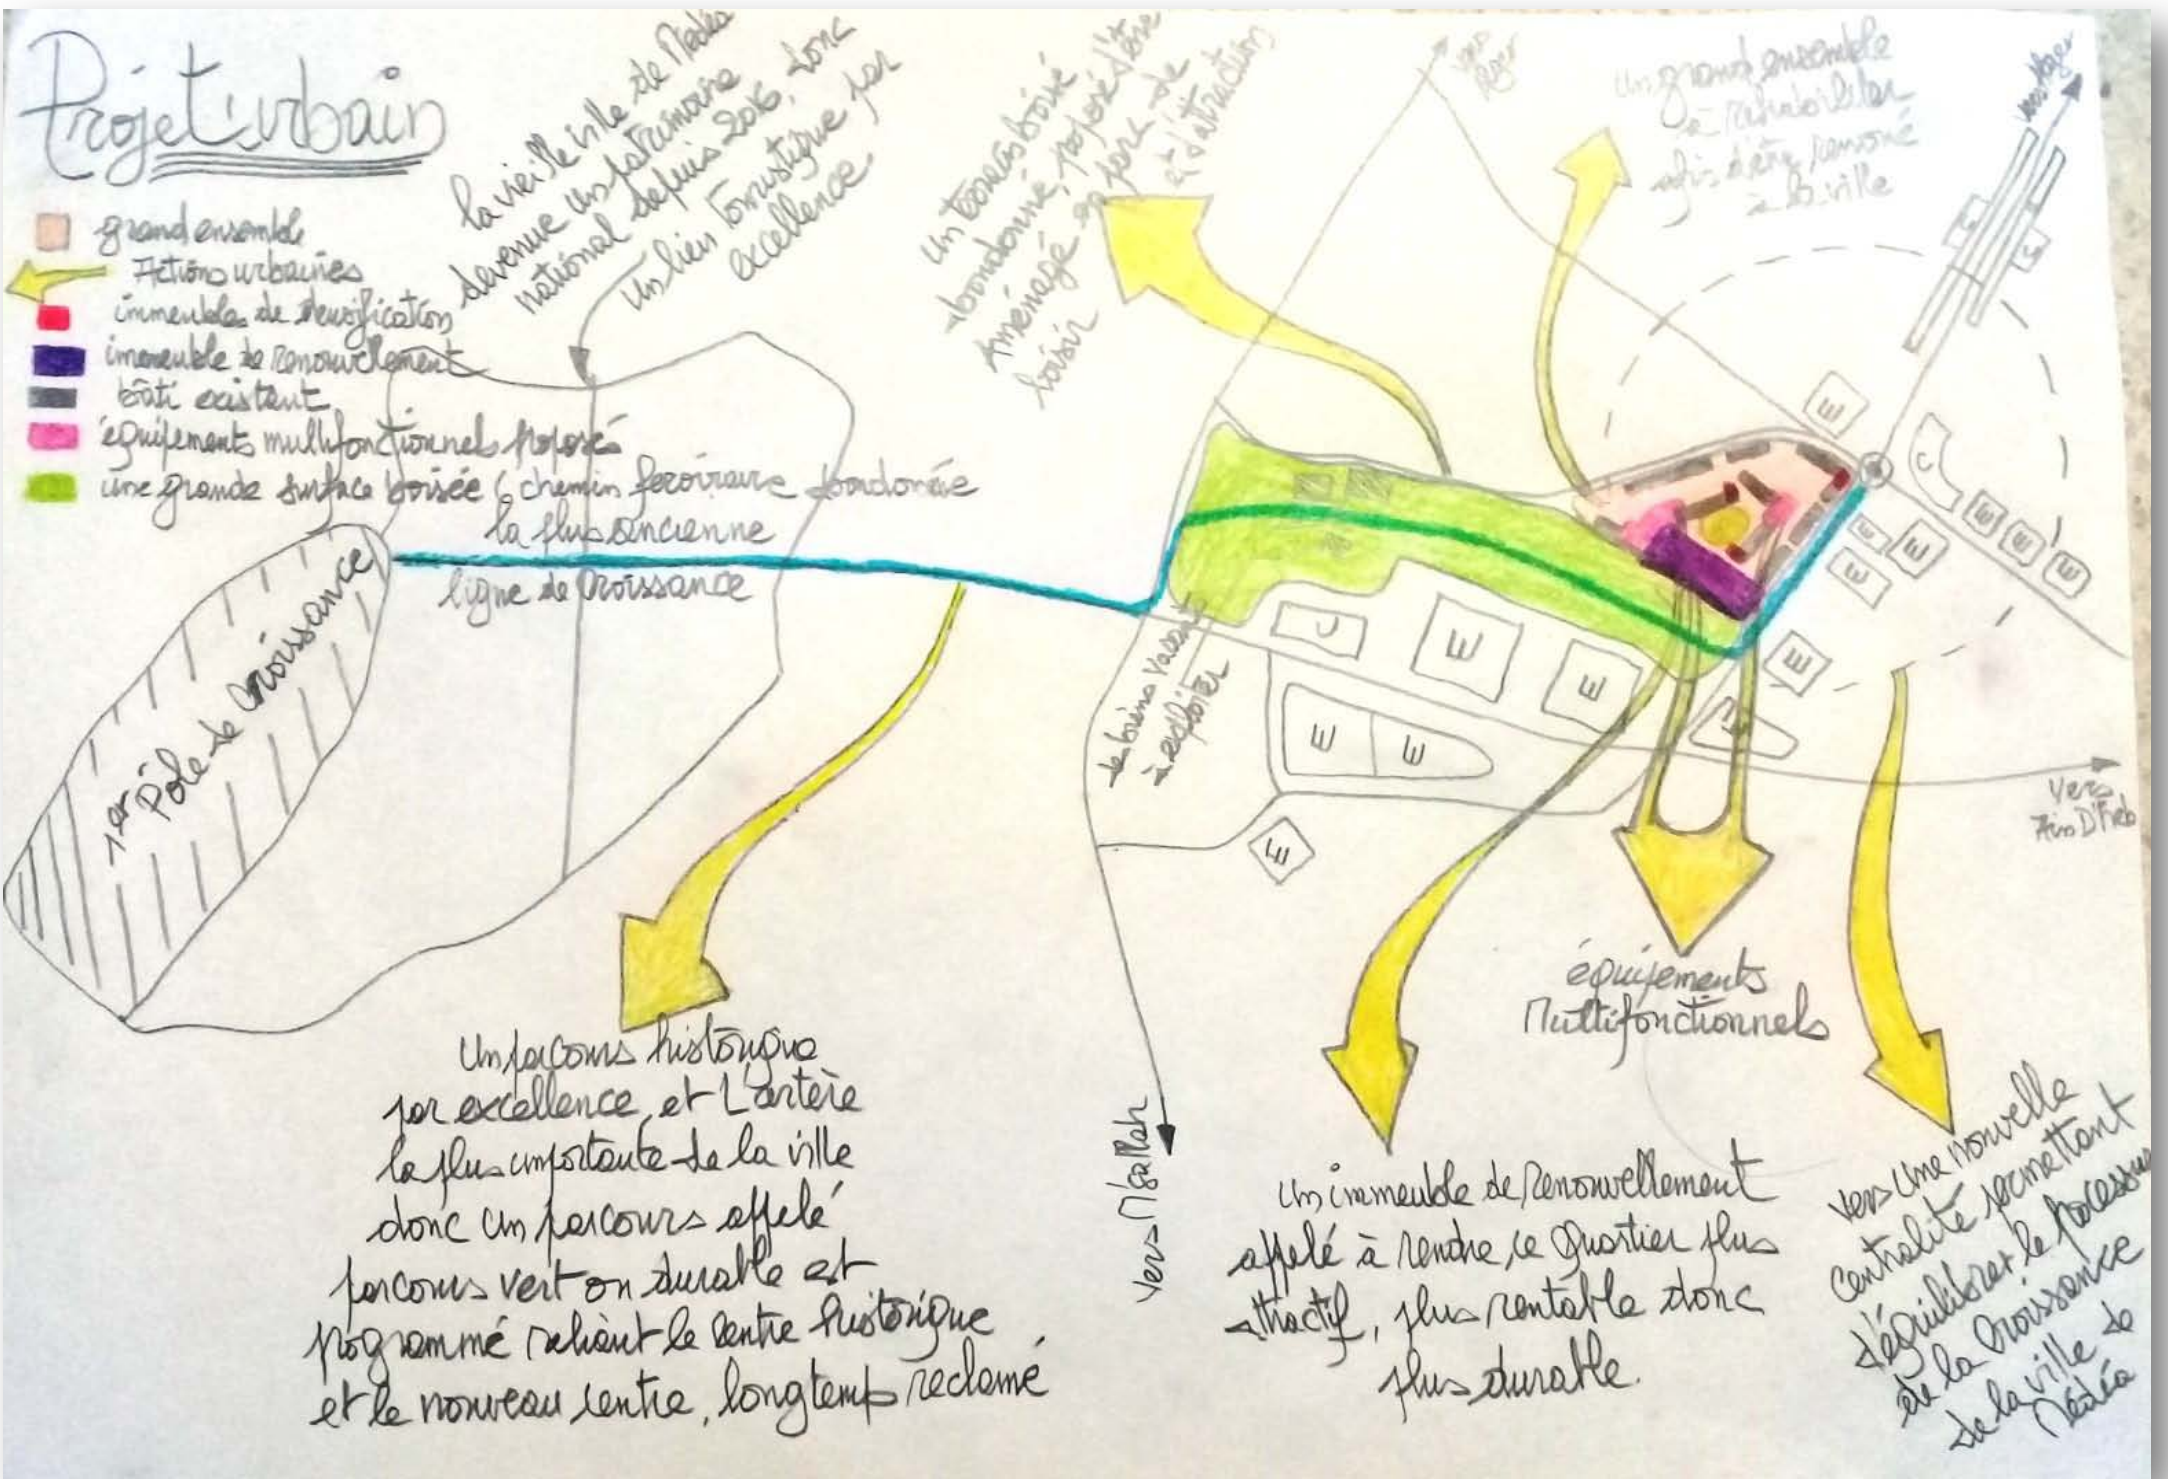 Projet urbain
grand ensemble
Actions urbaines
immeubles de densification
immeuble de renouvellement
bâti existant
équipements multifonctionnels proposés
une grande surface boisée ( chemin ferroviaire abandonnée
la vieille ville de Médéa
devenue un patrimoine
national depuis 2016, donc
un lieu touristique par
excellence
un terrain boisé
abandonné, proposé d'être
Aménagé en parc de
loisir et d'attraction
vers Alger
un grand ensemble
à réhabiliter
afin d'être
à la ville
vers Alger
la plus ancienne
ligne de croissance
1er Pôle de croissance
à exploiter
C
E
E
E
E
E
E
E
E
E
E
E
E
E
C
Vers
Ain D'heb
équipements
Multifonctionnels
Un parcours historique
par excellence, et L'artère
la plus importante de la ville
donc un parcours appelé
parcours vert ou durable est
programmé reliant le centre historique
et le nouveau centre, longtemps reclamé
Vers M'sallah
un immeuble de renouvellement
appelé à rendre ce quartier plus
attractif, plus rentable donc
plus durable.
vers une nouvelle
centralité permettant
d'équilibrer le processus
de la croissance
de la ville de
Médéa